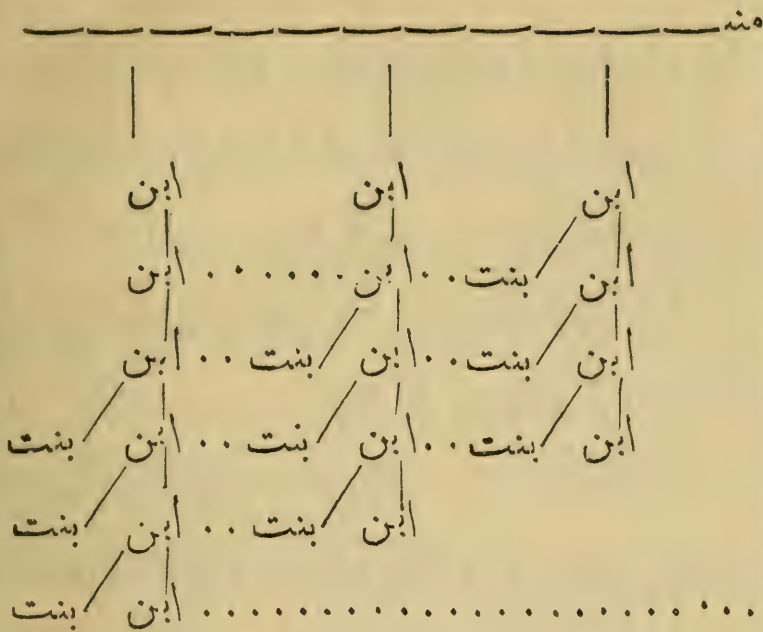 ابن ابن ابن
ابن بنت .. ابن ....... ابن
ابن بنت .. ابن بنت .. ابن
ابن بنت .. ابن بنت .. ابن بنت
ابن بنت .. ابن بنت
ابن بنت